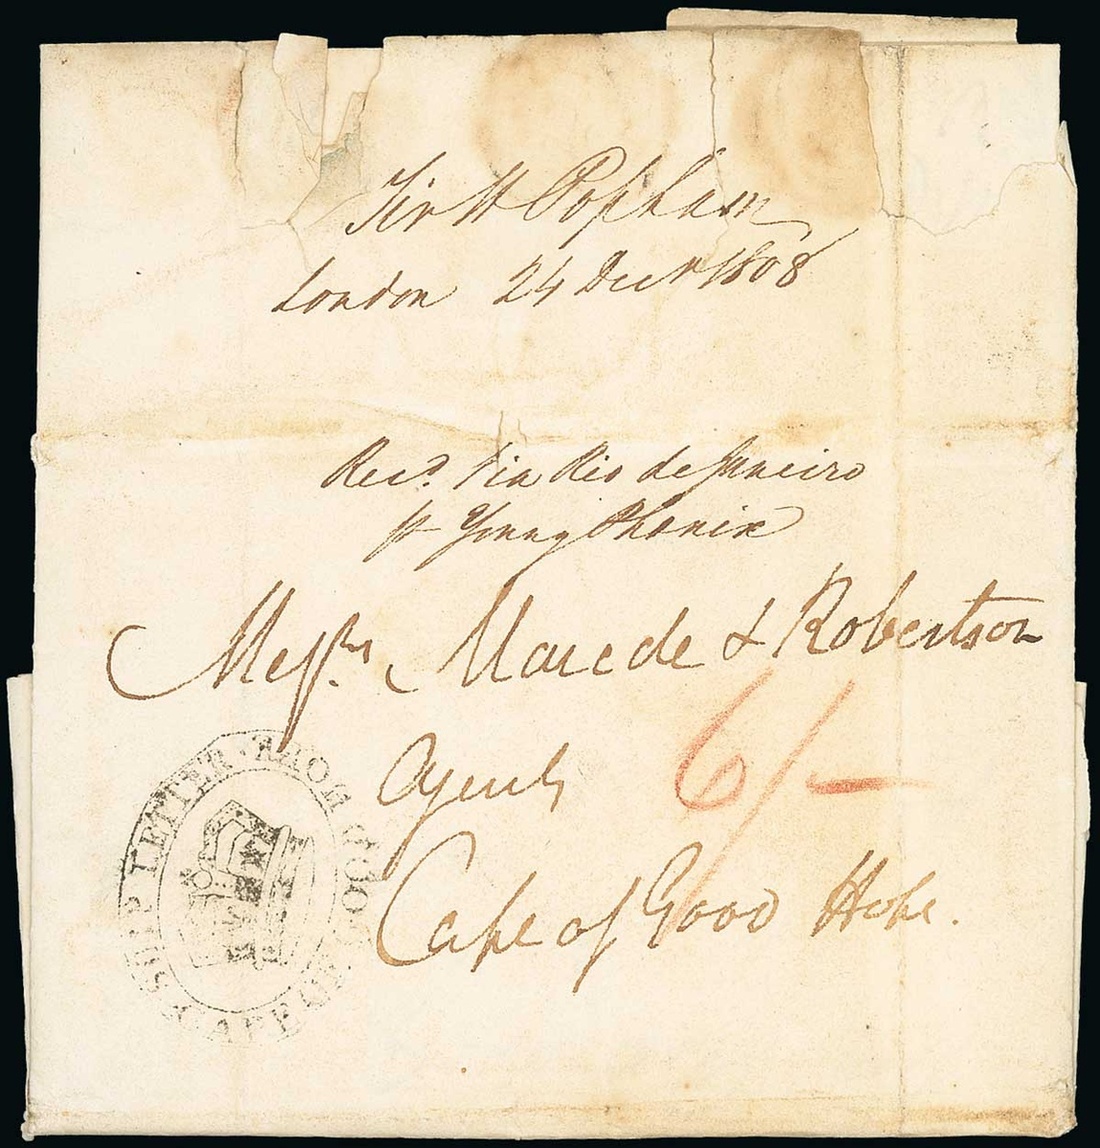 Sir H Popham
London 24 Decr 1808
Recd. Via Rio de Janeiro
pr Young Phenix
Messrs. Marede & Robertson
6/-
Agents
Cape of Good Hope.
SHIP LETTER · CAPE OF GOOD HOPE